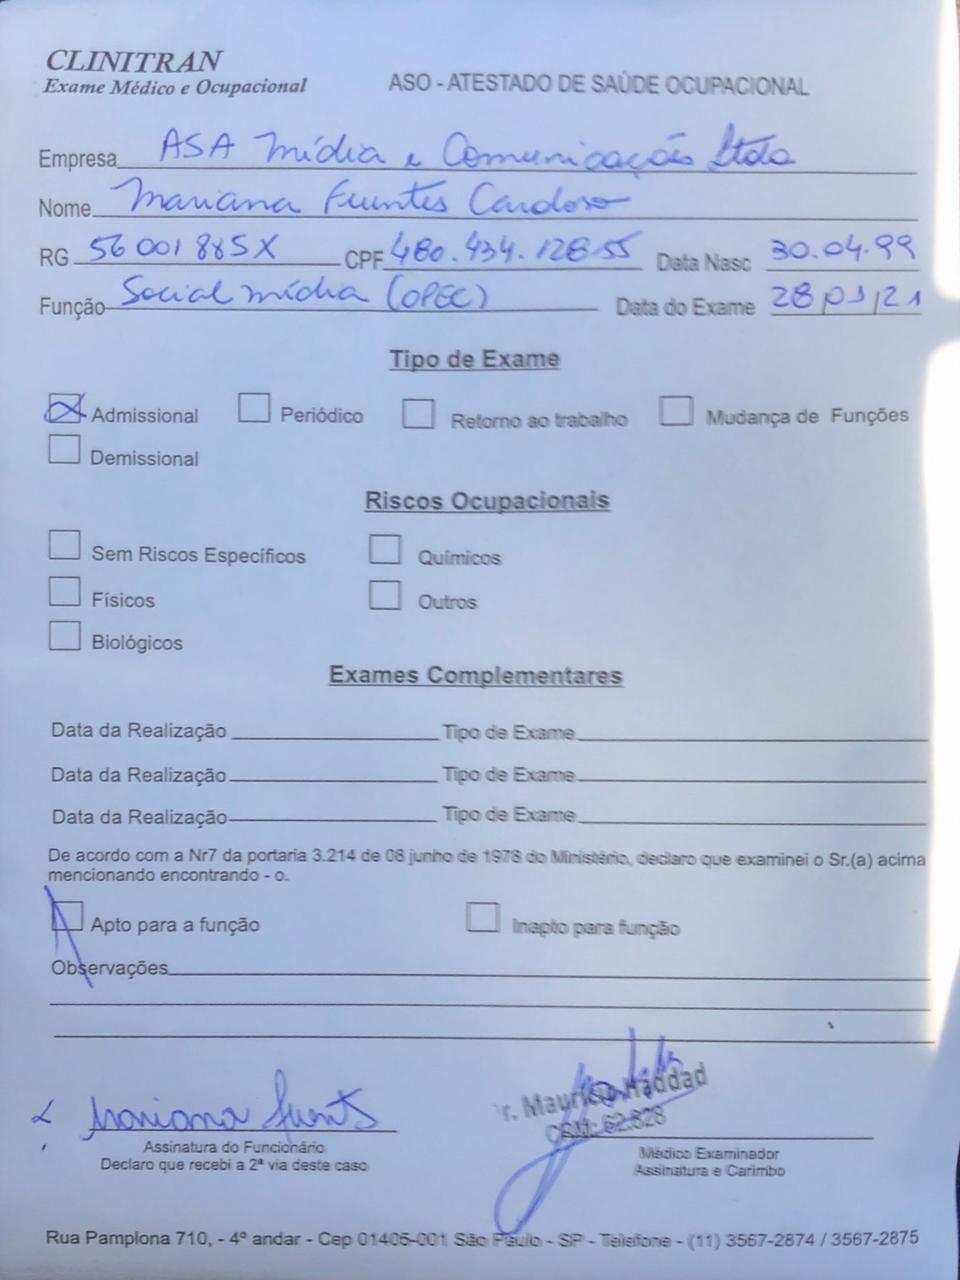 CLINITRAN
Exame Médico e Ocupacional
ASO - ATESTADO DE SAÚDE OCUPACIONAL
Empresa ASA Mídia e Comunicação Ltda
Nome Mariana Fuentes Cardoso
RG 56001885X CPF 480.434.128-55 Data Nasc 30.04.99
Função Social mídia (OPEC) Data do Exame 28/01/21
Tipo de Exame
Admissional Periódico Retorno ao trabalho Mudança de Funções
Demissional
Riscos Ocupacionais
Sem Riscos Específicos Químicos
Físicos Outros
Biológicos
Exames Complementares
Data da Realização Tipo de Exame
Data da Realização Tipo de Exame
Data da Realização Tipo de Exame
De acordo com a Nr7 da portaria 3.214 de 08 junho de 1978 do Ministério, declaro que examinei o Sr.(a) acima
mencionando encontrando - o.
Apto para a função Inapto para função
Observações
Mariana Fuents
Dr. Mauricio Haddad
CRM: 62.828
Assinatura do Funcionário
Declaro que recebi a 2ª via deste caso
Médico Examinador
Assinatura e Carimbo
Rua Pamplona 710, - 4º andar - Cep 01405-001 São Paulo - SP - Telefone - (11) 3567-2874 / 3567-2875